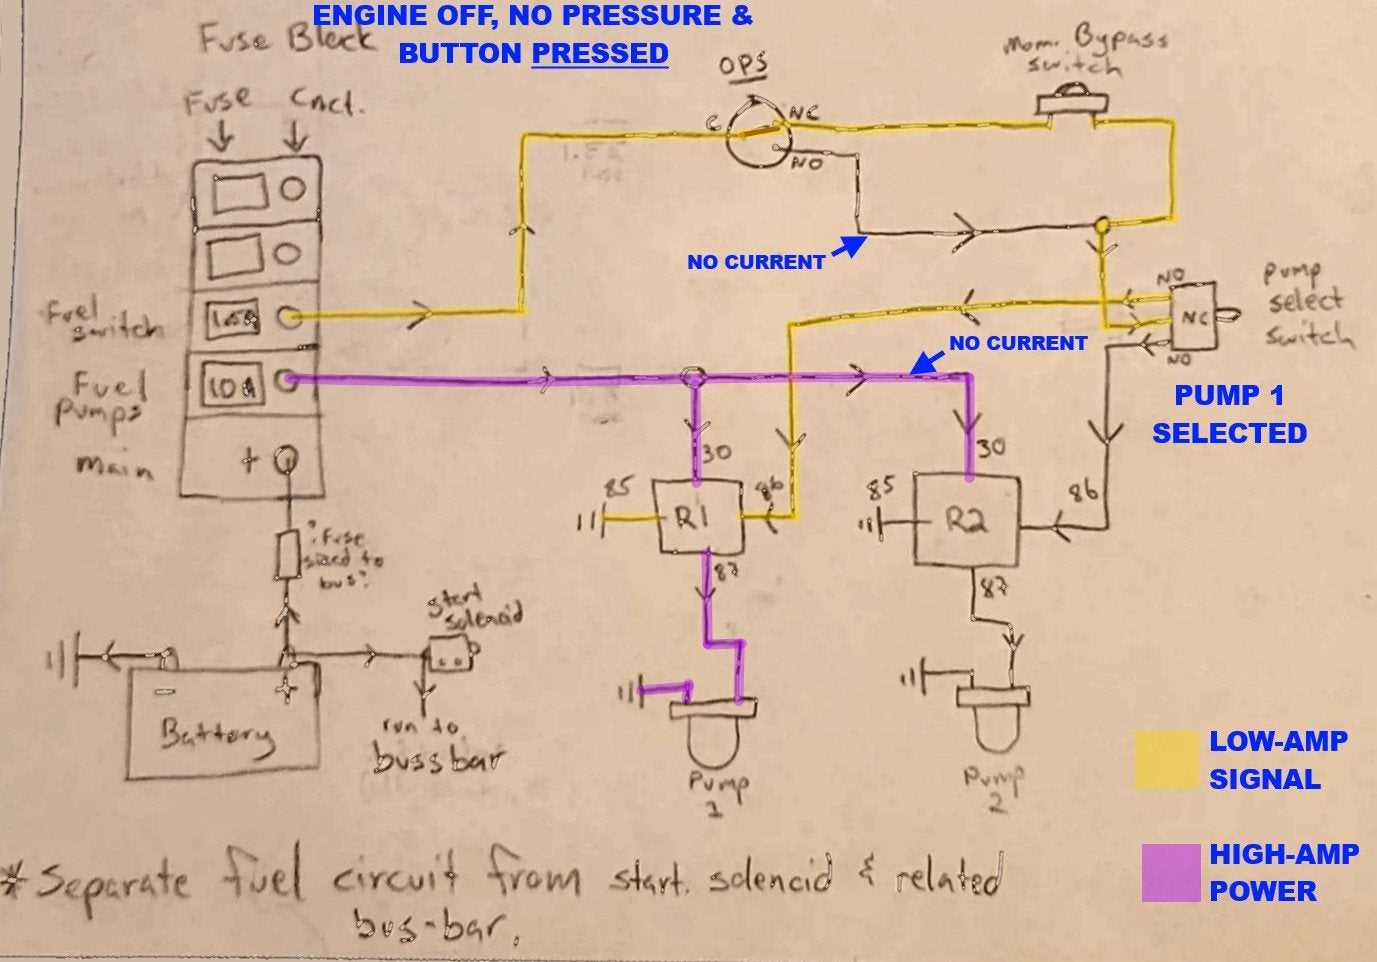 ENGINE OFF, NO PRESSURE &
BUTTON PRESSED
Fuse Block
Fuse Cnct.
OPS
Mom. Bypass
switch
C
NC
NO
NO CURRENT
Fuel
switch
1.5A
Fuel
Pumps
10A
Main
+
NO
NC
NO
Pump
select
switch
NO CURRENT
PUMP 1
SELECTED
30
85
R1
86
87
30
85
R2
86
87
? Fuse
sized to
bus?
start
solenoid
-
+
Battery
run to
bussbar
Pump
1
Pump
2
LOW-AMP
SIGNAL
HIGH-AMP
POWER
* Separate fuel circuit from start. solenoid & related
bus-bar.